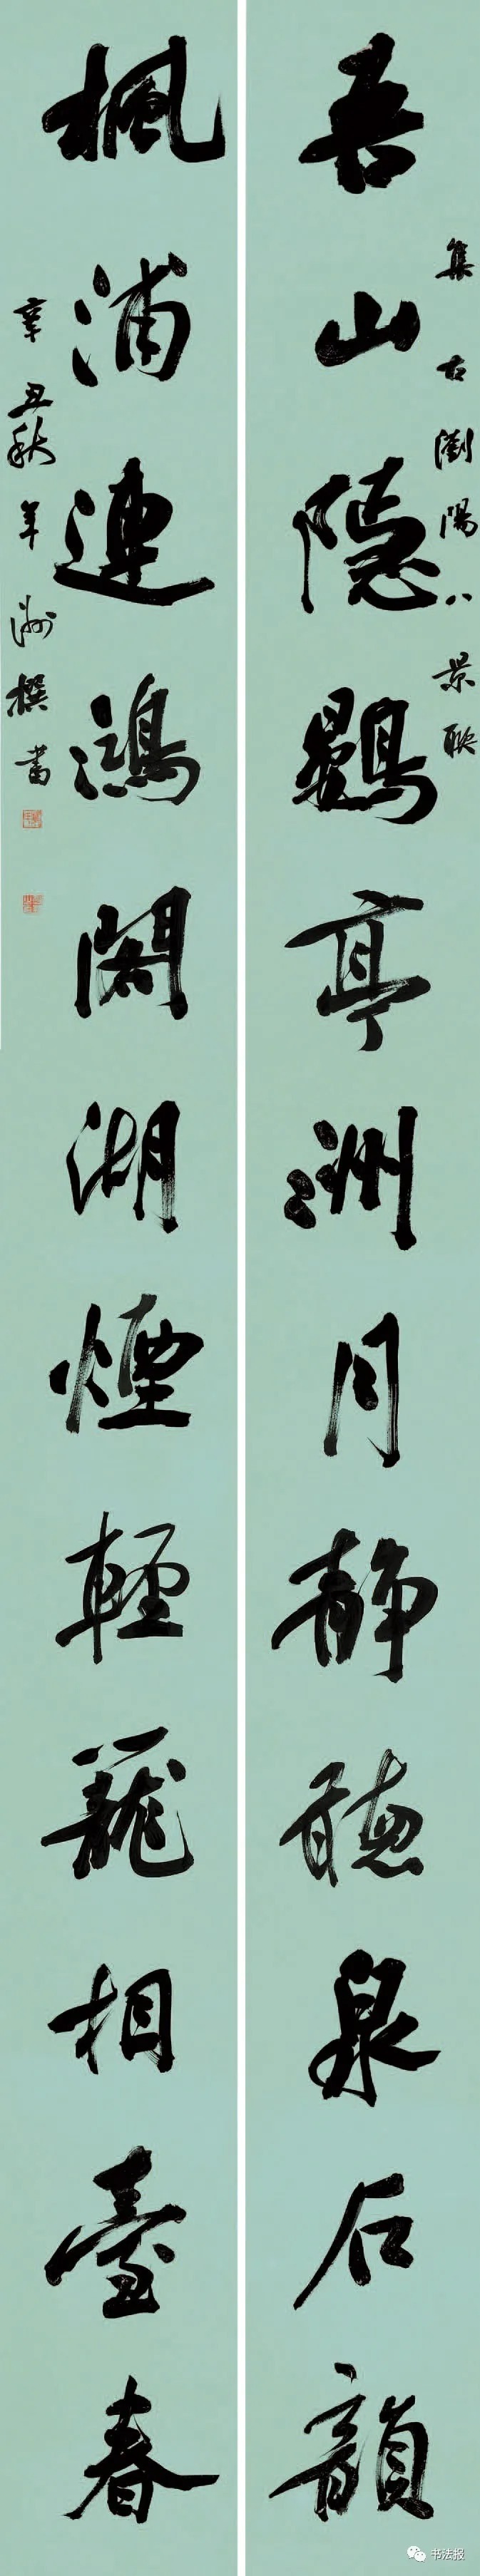 集古瀏陽八景聯
吾山隐鸚亭洲月静聴泉石韻
楓浦連鴻閣湖煙輕籠相臺春
辛丑秋年洲撰書
书法报